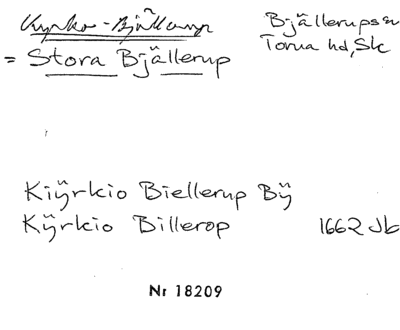 Kyrko-Bjällerup
= Stora Bjällerup
Bjällerups sn
Torna hd, Sk
Kiÿrkio Biellerup Bÿ
Kÿrkio Billerop 1662 Jb
Nr 18209